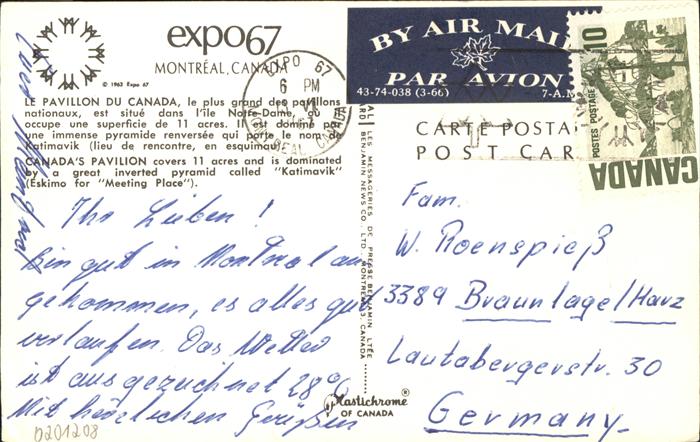 expo67
MONTRÉAL, CANADA
© 1963 Expo 67
LE PAVILLON DU CANADA, le plus grand des pavillons
nationaux, est situé dans l'île Notre-Dame, et
occupe une superficie de 11 acres. Il est dominé par
une immense pyramide renversée qui porte le nom de
Katimavik (lieu de rencontre, en esquimau).
CANADA'S PAVILION covers 11 acres and is dominated
by a great inverted pyramid called "Katimavik"
(Eskimo for "Meeting Place").
Ihr Lieben!
Bin gut in Montreal an
gekommen, es alles gut
verlaufen. Das Wetter
ist ausgezeichnet 28°
Mit herzlichen Grüßen
0201208
EXPO 67
6 PM
BY AIR MAIL
PAR AVION
43-74-038 (3-66)
10
POSTES POSTAGE
CANADA
CARTE POSTALE
POST CARD
LES MESSAGERIES DE PRESSE BENJAMIN LTÉE
BENJAMIN NEWS CO., LTD., MONTREAL 3, CANADA
Plastichrome®
OF CANADA
Fam.
W. Roenspieß
3389 Braunlage/Harz
Lautabergerstr. 30
Germany.